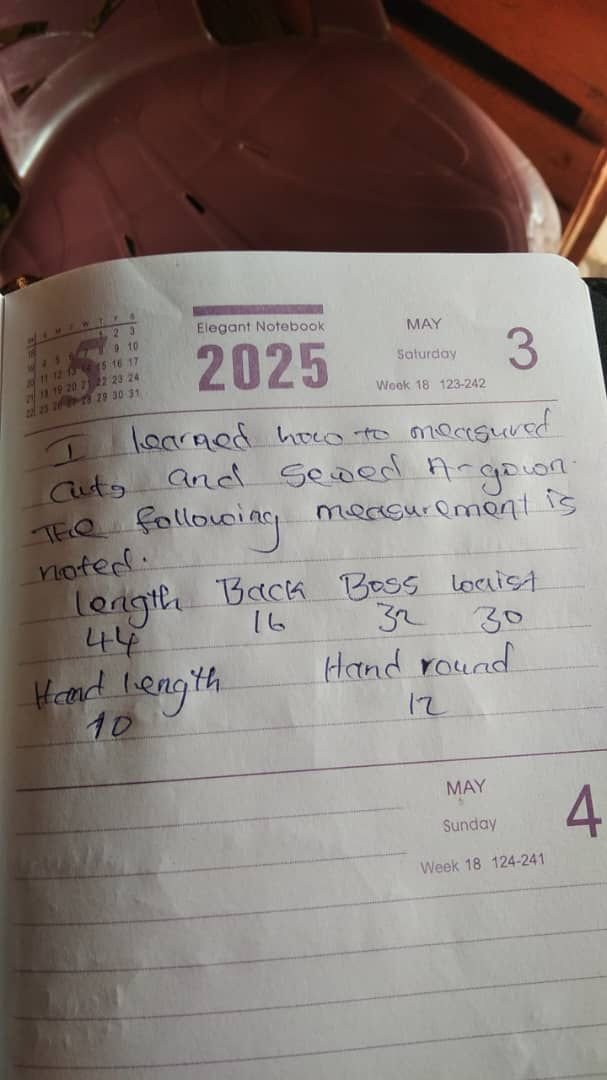 S M T W T F S
1 2 3
4 5 9 10
11 12 13 14 15 16 17
18 19 20 21 22 23 24
25 26 27 28 29 30 31
Elegant Notebook
2025
MAY
Saturday
3
Week 18 123-242
I learned how to measured
cuts and sewed A-gown.
THe following measurement is
noted.
length Back Boss waist
44 16 32 30
Hand length Hand round
10 12
MAY
Sunday
4
Week 18 124-241